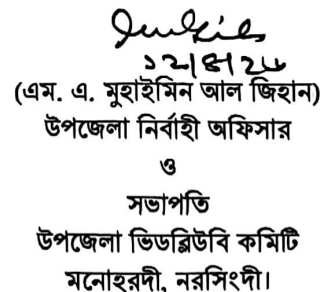 (এম. এ. মুহাইমিন আল জিহান)
উপজেলা নির্বাহী অফিসার
ও
সভাপতি
উপজেলা ভিডব্লিউবি কমিটি
মনোহরদী, নরসিংদী।